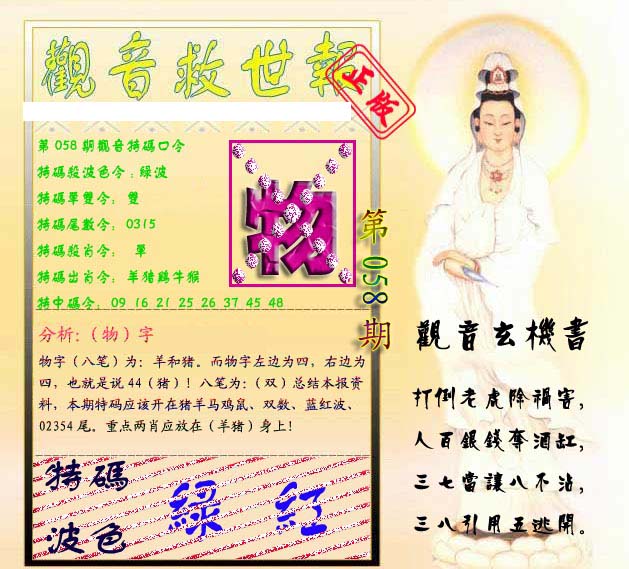 觀音救世報
正版
第 058 期觀音特碼口令
特碼殺波色令：綠波
特碼單雙令： 雙
特碼尾數令： 0315
特碼殺肖令： 單
特碼出肖令： 羊猪鷄牛猴
特中碼令： 09 16 21 25 26 37 45 48
物
第 058 期
分析:（物）字
物字（八笔）为：羊和猪。而物字左边为四，右边为
四，也就是说 44（猪）！八笔为：（双）总结本报资
料，本期特码应该开在猪羊马鸡鼠、双数、蓝红波、
02354 尾。重点两肖应放在（羊猪）身上！
特碼
波色
綠 紅
觀音玄機書
打倒老虎除禍害，
人百銀錢奪酒缸，
三七當讓八不沾，
三八引用五逃開。